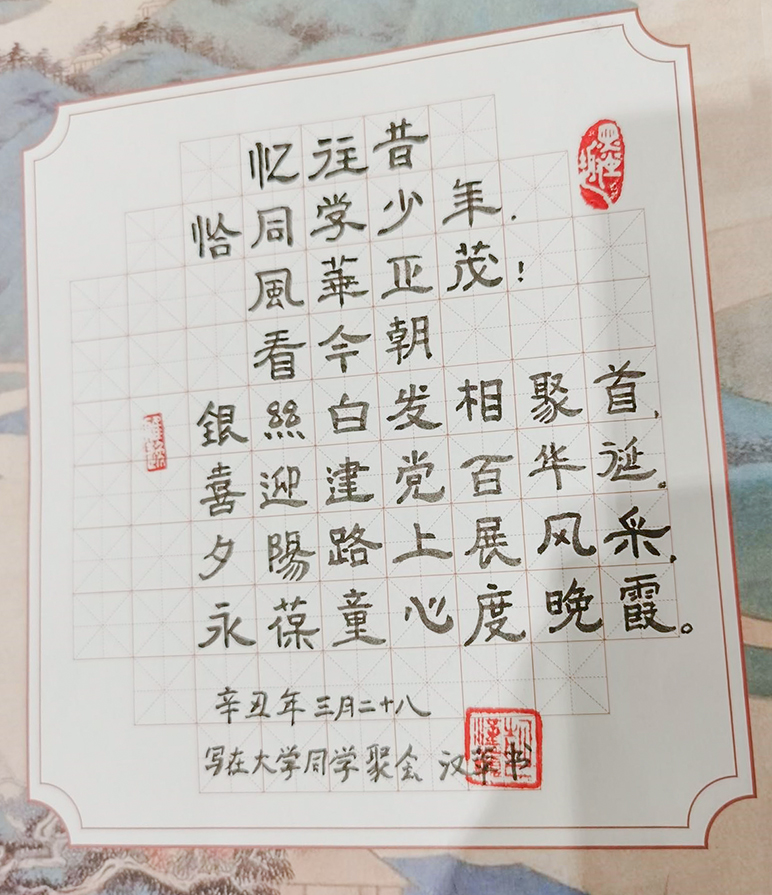 忆往昔
恰同学少年，
風華正茂！
看今朝
銀絲白发相聚首，
喜迎建党百华诞。
夕陽路上展风采，
永葆童心度晚霞。
辛丑年三月二十八
写在大学同学聚会 汉華书